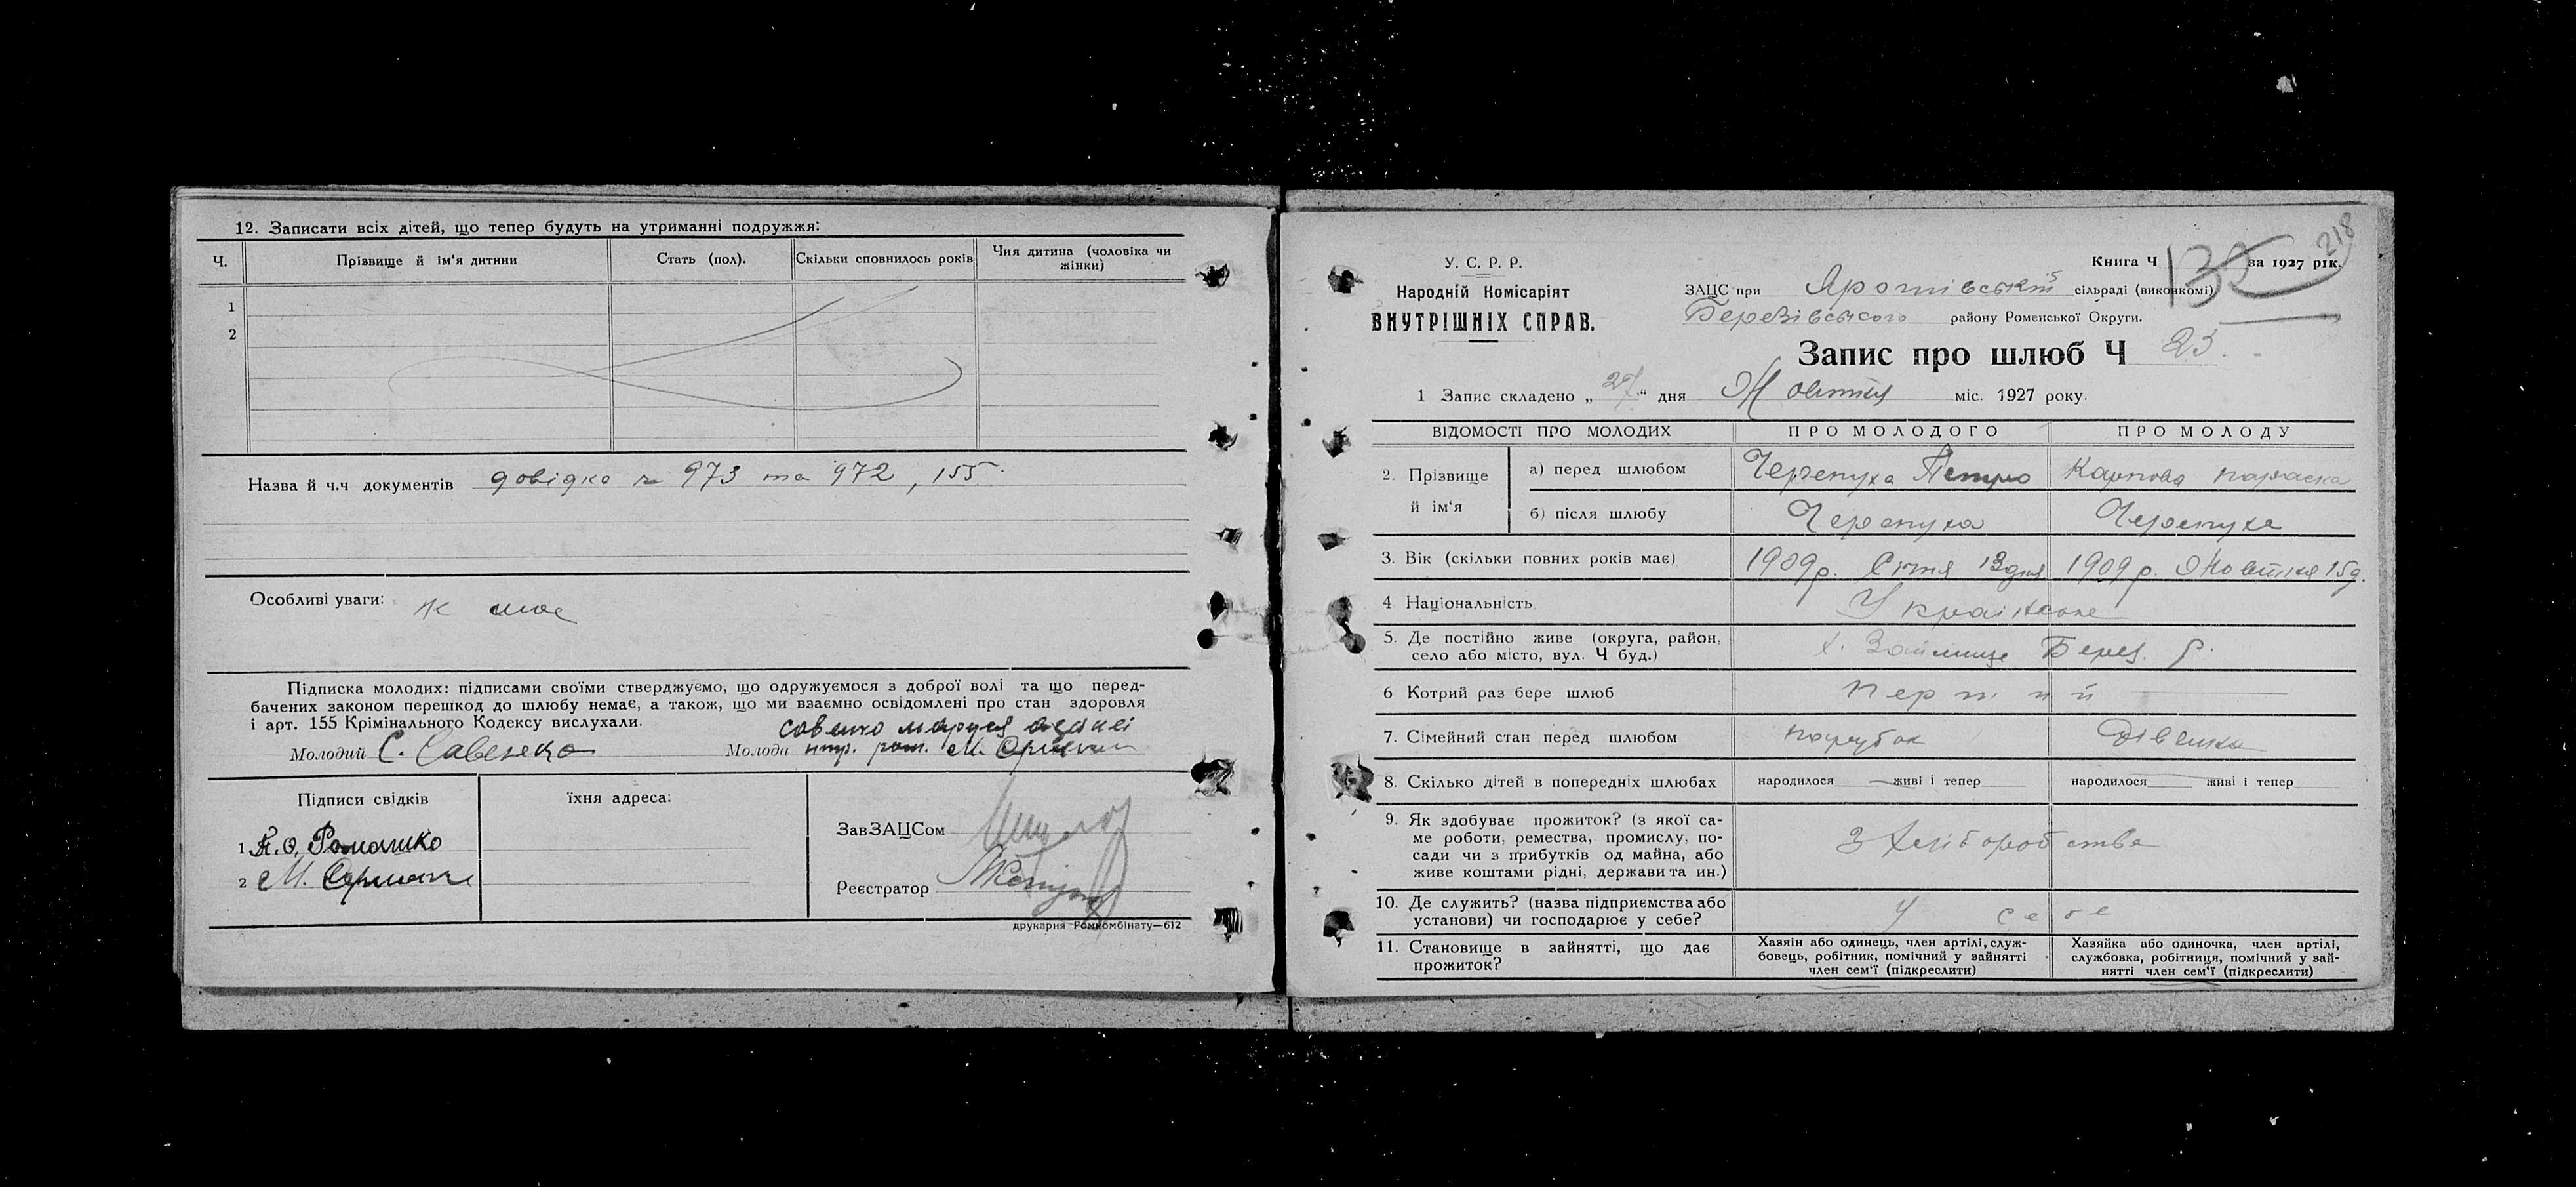 12. Записати всіх дітей, що тепер будуть на утриманні подружжя:
Ч. Прізвище й ім'я дитини Стать (пол). Скільки сповнилось років Чия дитина (чоловіка чи жінки)
1
2
Назва й ч.ч документів довідка ч 973 та 972, 155.
Особливі уваги:
Підписка молодих: підписами своїми стверджуємо, що одружуємося з доброї волі та що перед-
бачених законом перешкод до шлюбу немає, а також, що ми взаємно освідомлені про стан здоровля
і арт. 155 Крімінального Кодексу вислухали.
Савенко Маруся
Молодий С. Савенко Молода М.
Підписи свідків їхня адреса:
ЗавЗАЦСом
1 Романко
2 М.
Реєстратор
друкарня Ромкомбінату—612
218
У. С. Р. Р.
Народній Комісаріят
ВНУТРІШНІХ СПРАВ.
Книга Ч 13 за 1927 рік.
ЗАЦС при Яротівській сільраді (виконкомі)
Березівського району Роменської Округи.
Запис про шлюб Ч 23.
1 Запис складено „27“ дня Жовтня міс. 1927 року.
ВІДОМОСТІ ПРО МОЛОДИХ ПРО МОЛОДОГО ПРО МОЛОДУ
2. Прізвище й ім'я а) перед шлюбом Черепуха Петро Карпова Параска
б) після шлюбу Черепуха Черепуха
3. Вік (скільки повних років має) 1909р. Січня 13дня 1909р. Жовтня 15д.
4 Національність Українське
5. Де постійно живе (округа, район, село або місто, вул. Ч буд.) х. Займище Берез. р.
6 Котрий раз бере шлюб Перший
7. Сімейний стан перед шлюбом парубок дівчина
8. Скілько дітей в попередніх шлюбах народилося живі і тепер народилося живі і тепер
9. Як здобуває прожиток? (з якої са-
ме роботи, ремества, промислу, по-
сади чи з прибутків од майна, або
живе коштами рідні, держави та ин.) З Хліборобства
10. Де служить? (назва підприємства або
установи) чи господарює у себе? У себе
11. Становище в зайнятті, що дає
прожиток?
Хазяін або одинець, член артілі, служ-
бовець, робітник, помічний у зайнятті
член сем'ї (підкреслити)
Хазяйка або одиночка, член артілі,
службовка, робітниця, помічний у зай-
нятті член сем'ї (підкреслити)